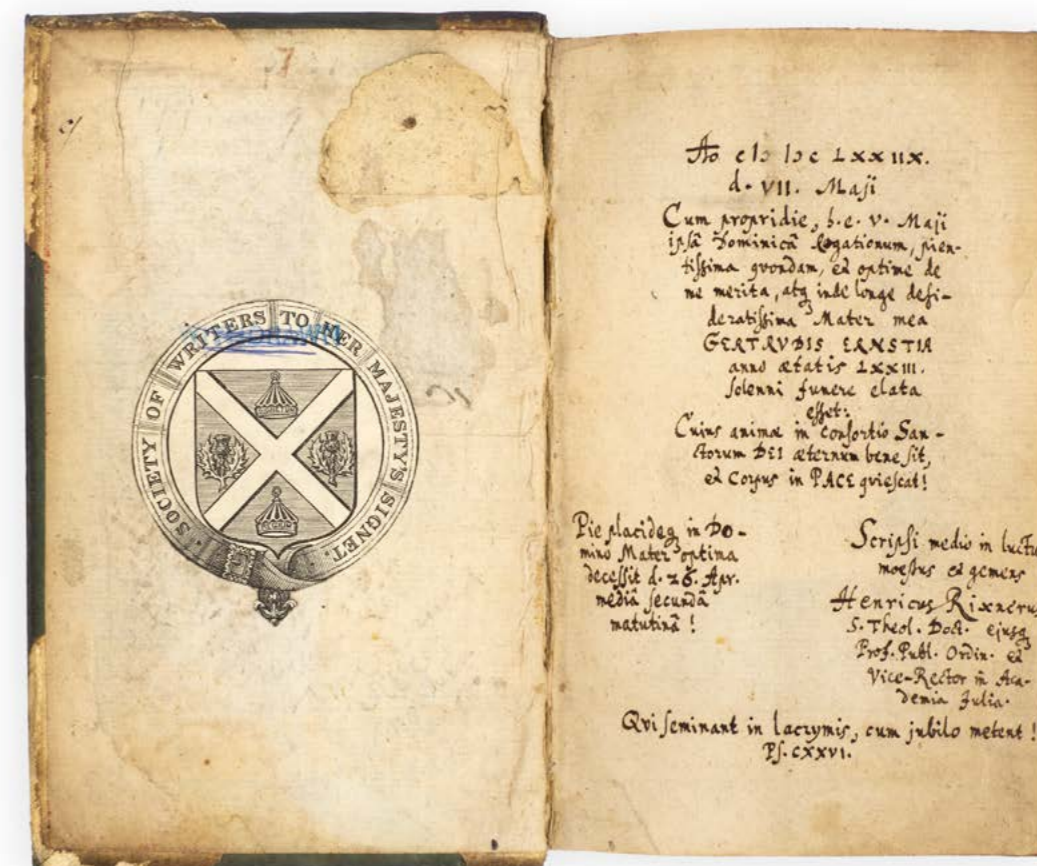 7
SOCIETY OF WRITERS TO HER MAJESTY'S SIGNET.
Ao cIↄ Iↄc LXXIIX.
d. VII. Maji
Cum propridie, h.e. V. Maji
ipsâ Dominicâ Rogationum, pien-
tissima qvondam, et optime de
me merita, atq inde longe desi-
deratissima Mater mea
GERTRVDIS ERNSTIA
anno ætatis LXXIII.
solenni funere elata
esset:
Cuius animæ in consortio San-
ctorum DEI æternum bene sit,
et Corpus in PACE qviescat!
Pie placideq in DO-
mino Mater optima
decessit d. 26. Apr.
mediâ secundâ
matutinâ!
Scripsi medio in luctu
moestus et gemens
Henricus Rixnerus
S. Theol. Doct. ejusq
Prof. Publ. Ordin. et
Vice-Rector in Aca-
demia Julia.
Qvi seminant in lacrymis, cum jubilo metent!
Ps. CXXVI.